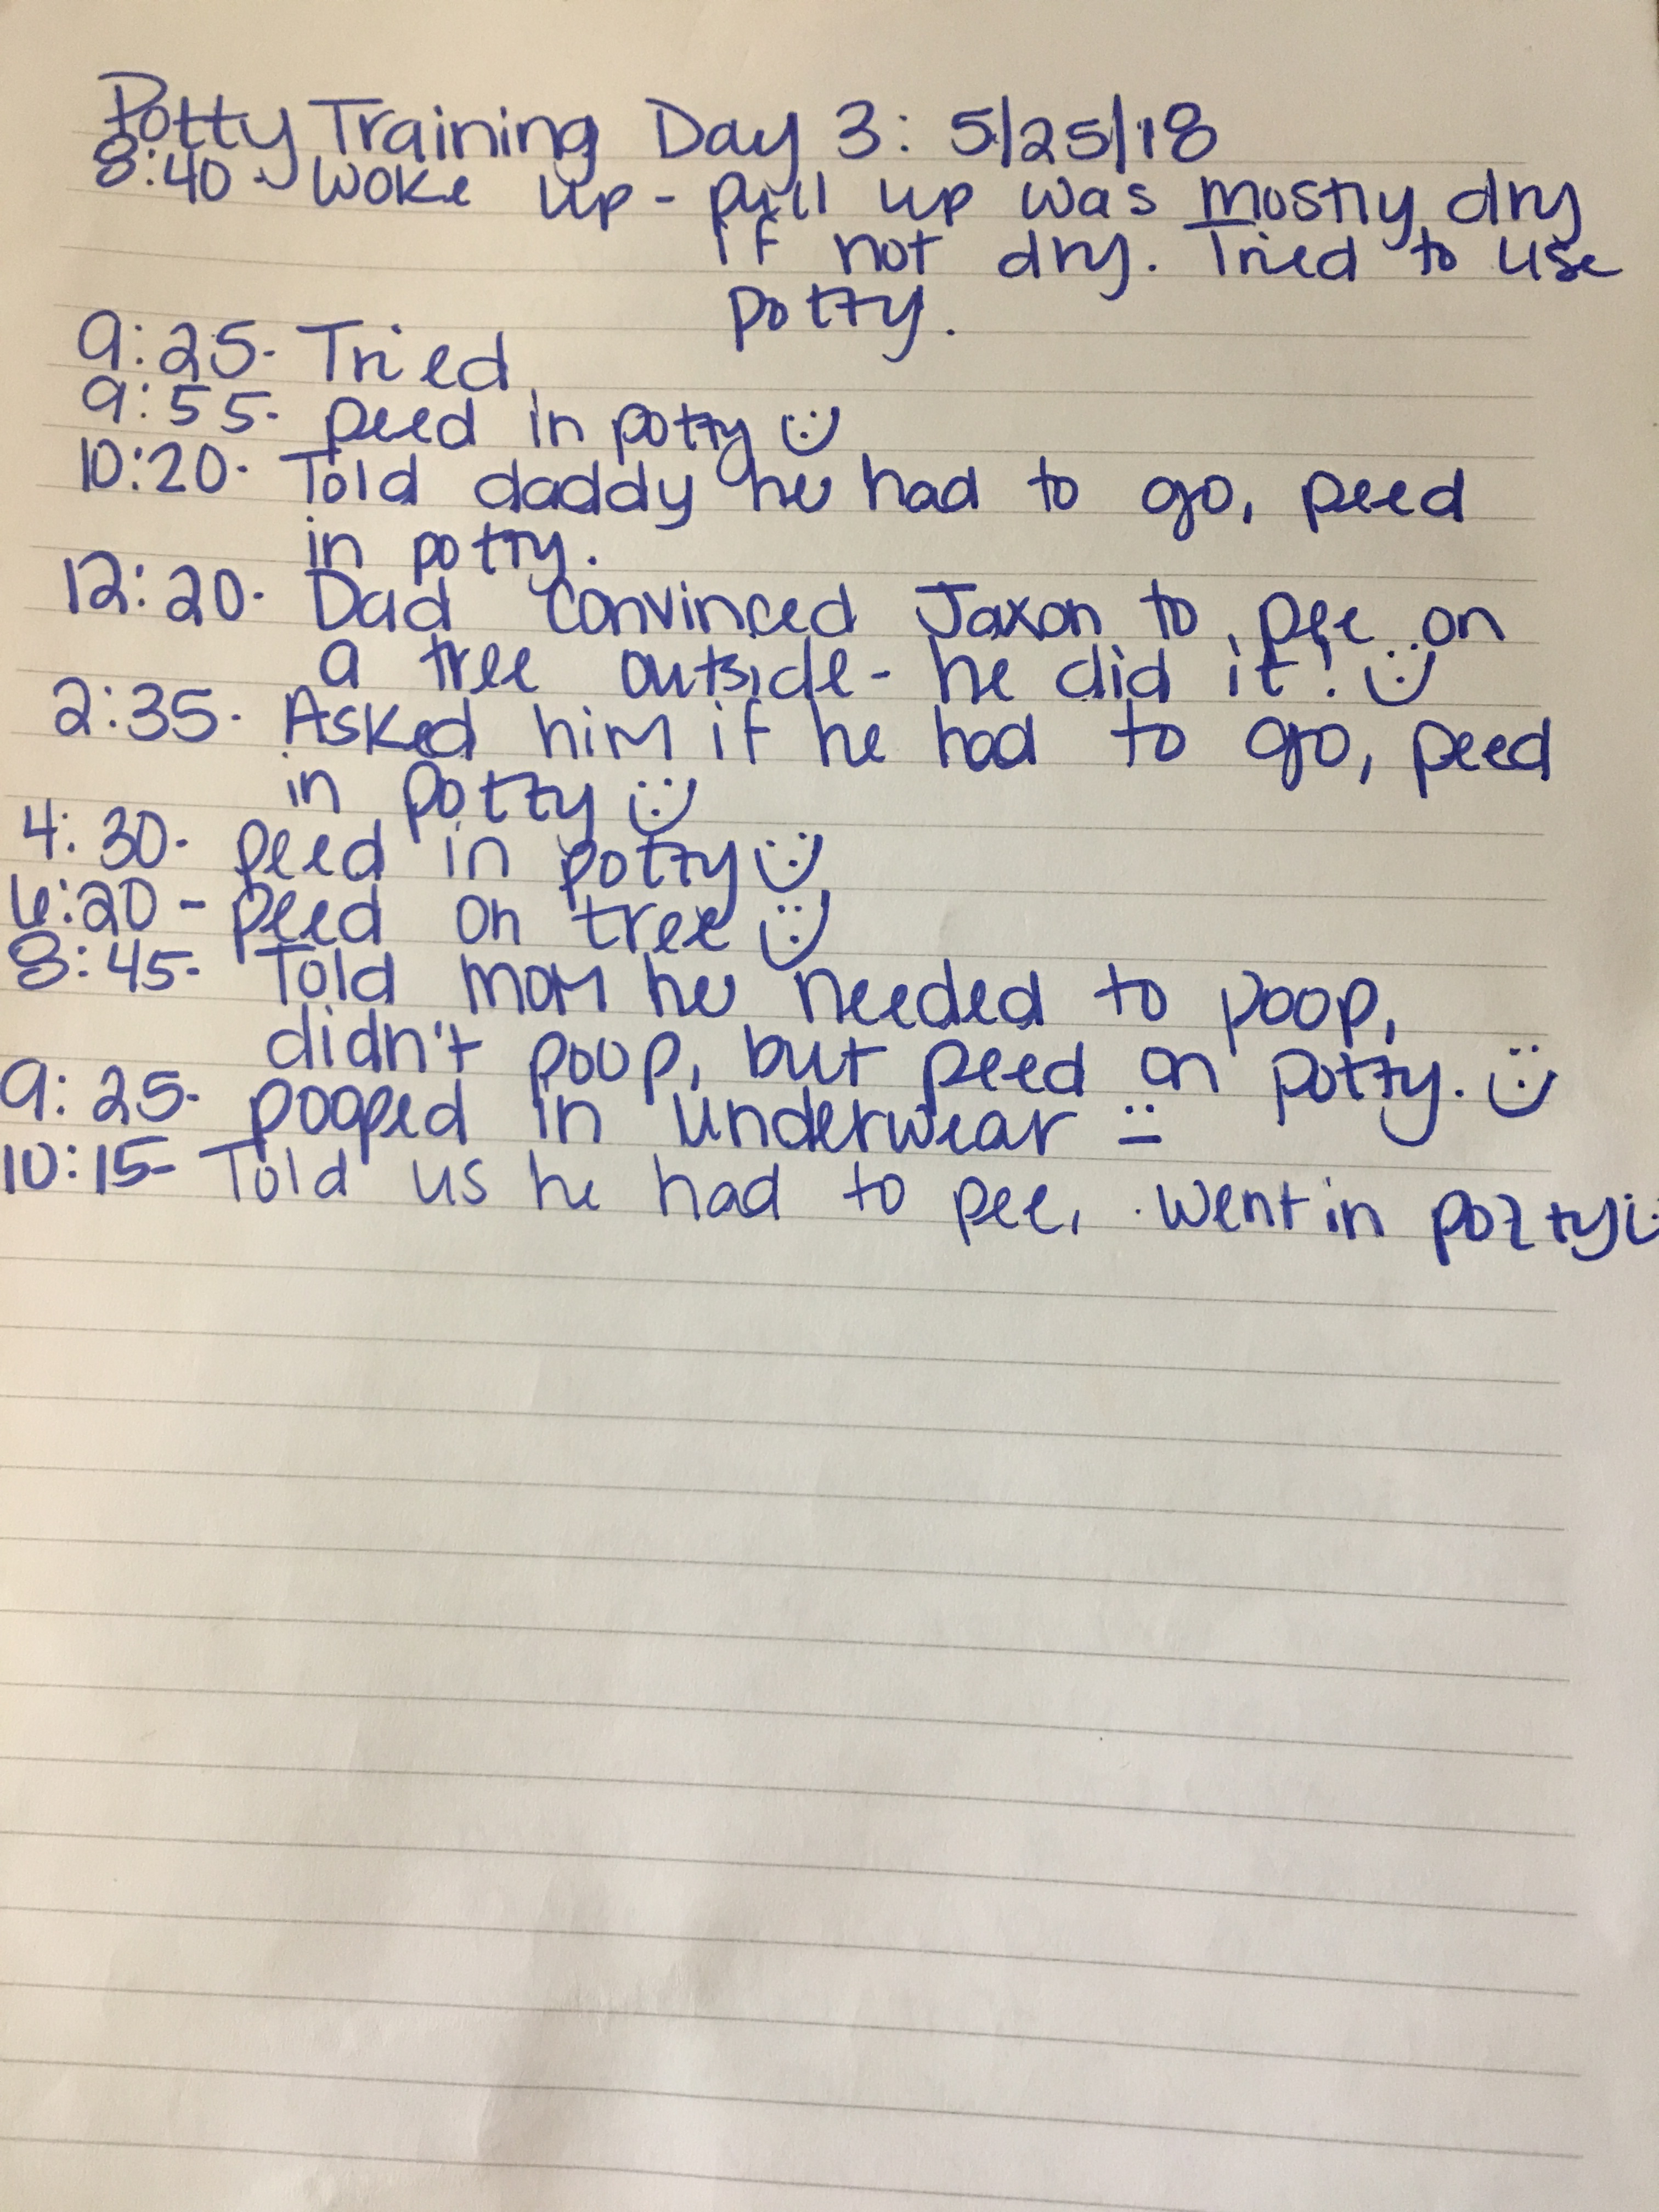 Potty Training Day 3: 5/25/18
8:40 - Woke up - pull up was mostly dry
if not dry. Tried to use
potty.
9:25- Tried
9:55- peed in potty :)
10:20- Told daddy he had to go, peed
in potty.
12:20- Dad convinced Jaxon to pee on
a tree outside- he did it! :)
2:35- Asked him if he had to go, peed
in potty :)
4:30- peed in potty :)
6:20 - peed on tree :)
8:45- Told mom he needed to poop,
didn't poop, but peed on potty. :)
9:25- pooped in underwear :|
10:15- Told us he had to pee, went in potty :)